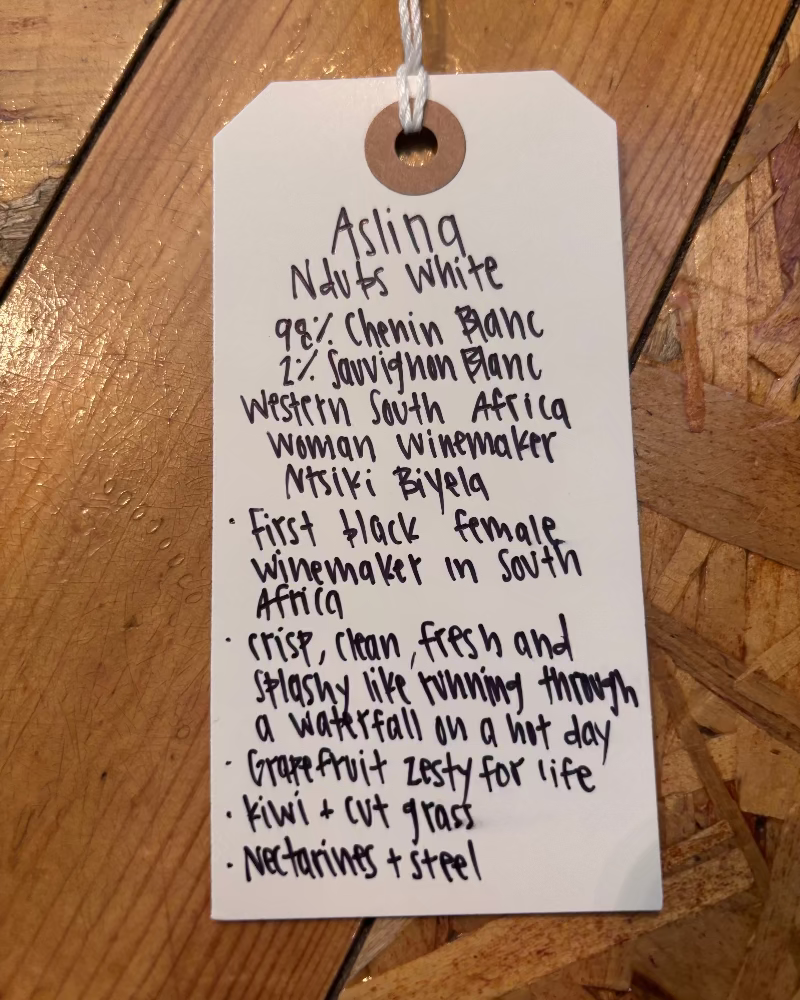 Aslina
Nduts White
98% Chenin Blanc
2% Sauvignon Blanc
Western South Africa
Woman Winemaker
Ntsiki Biyela
· First black female
winemaker in South
Africa
· crisp, clean, fresh and
splashy like running through
a waterfall on a hot day
· Grapefruit zesty for life
· kiwi + cut grass
· Nectarines + steel